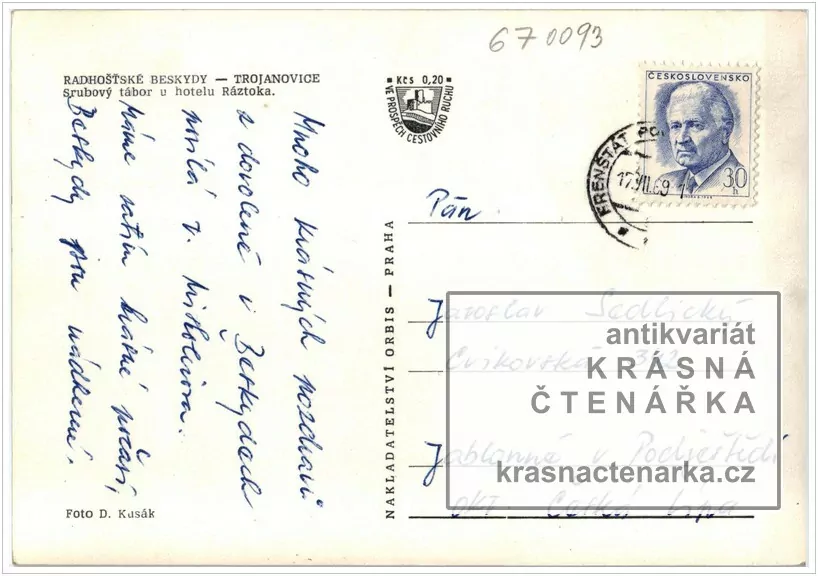 670093
RADHOŠŤSKÉ BESKYDY — TROJANOVICE
Srubový tábor u hotelu Ráztoka.
Kčs 0,20
VE PROSPĚCH CESTOVNÍHO RUCHU
ČESKOSLOVENSKO
30 h
FRENŠTÁT POD
Mnoho krásných pozdravů
z dovolené v Beskydech
posílá
Máme zatím krásné počasí,
Beskydy jsou nádherné.
NAKLADATELSTVÍ ORBIS — PRAHA
Pán
Jaroslav Sedlický
Cvikovská 342
Jablonné v Podještědí
okr. Česká Lípa
antikvariát
KRÁSNÁ
ČTENÁŘKA
krasnactenarka.cz
Foto D. Kusák